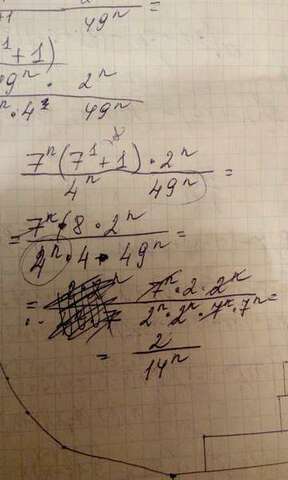 49ⁿ =
¹+1)
49ⁿ · 2ⁿ
ⁿ · 4¹ 49ⁿ
7ⁿ(7¹+1) · 2ⁿ
4ⁿ 49ⁿ =
= 7ⁿ · 8 · 2ⁿ
4ⁿ · 4 · 49ⁿ =
= 7ⁿ · 2 · 2ⁿ
2ⁿ · 2ⁿ · 7ⁿ · 7ⁿ =
= 2
14ⁿ